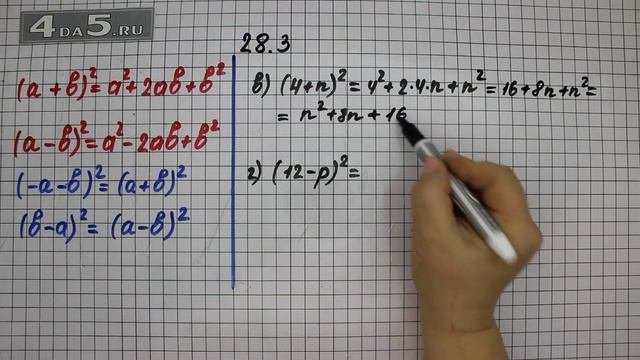 4ДА5.RU
28.3
(a + b)² = a² + 2ab + b²
(a - b)² = a² - 2ab + b²
(-a - b)² = (a + b)²
(b - a)² = (a - b)²
в) (4+n)² = 4² + 2·4·n + n² = 16 + 8n + n² =
= n² + 8n + 16
г) (12 - p)² =